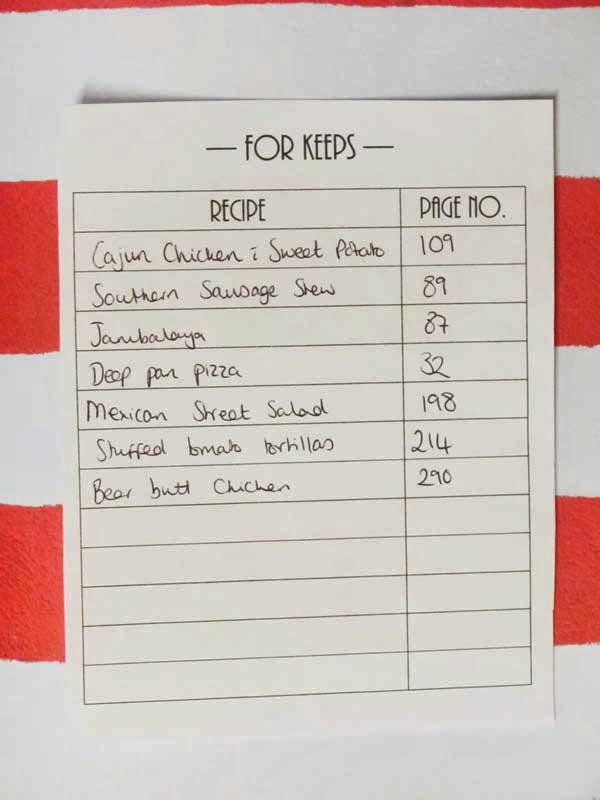 — FOR KEEPS —
RECIPE PAGE NO.
Cajun Chicken & Sweet Potato 109
Southern Sausage Stew 89
Jambalaya 87
Deep pan pizza 32
Mexican Street Salad 198
Stuffed tomato tortillas 214
Beer butt Chicken 290